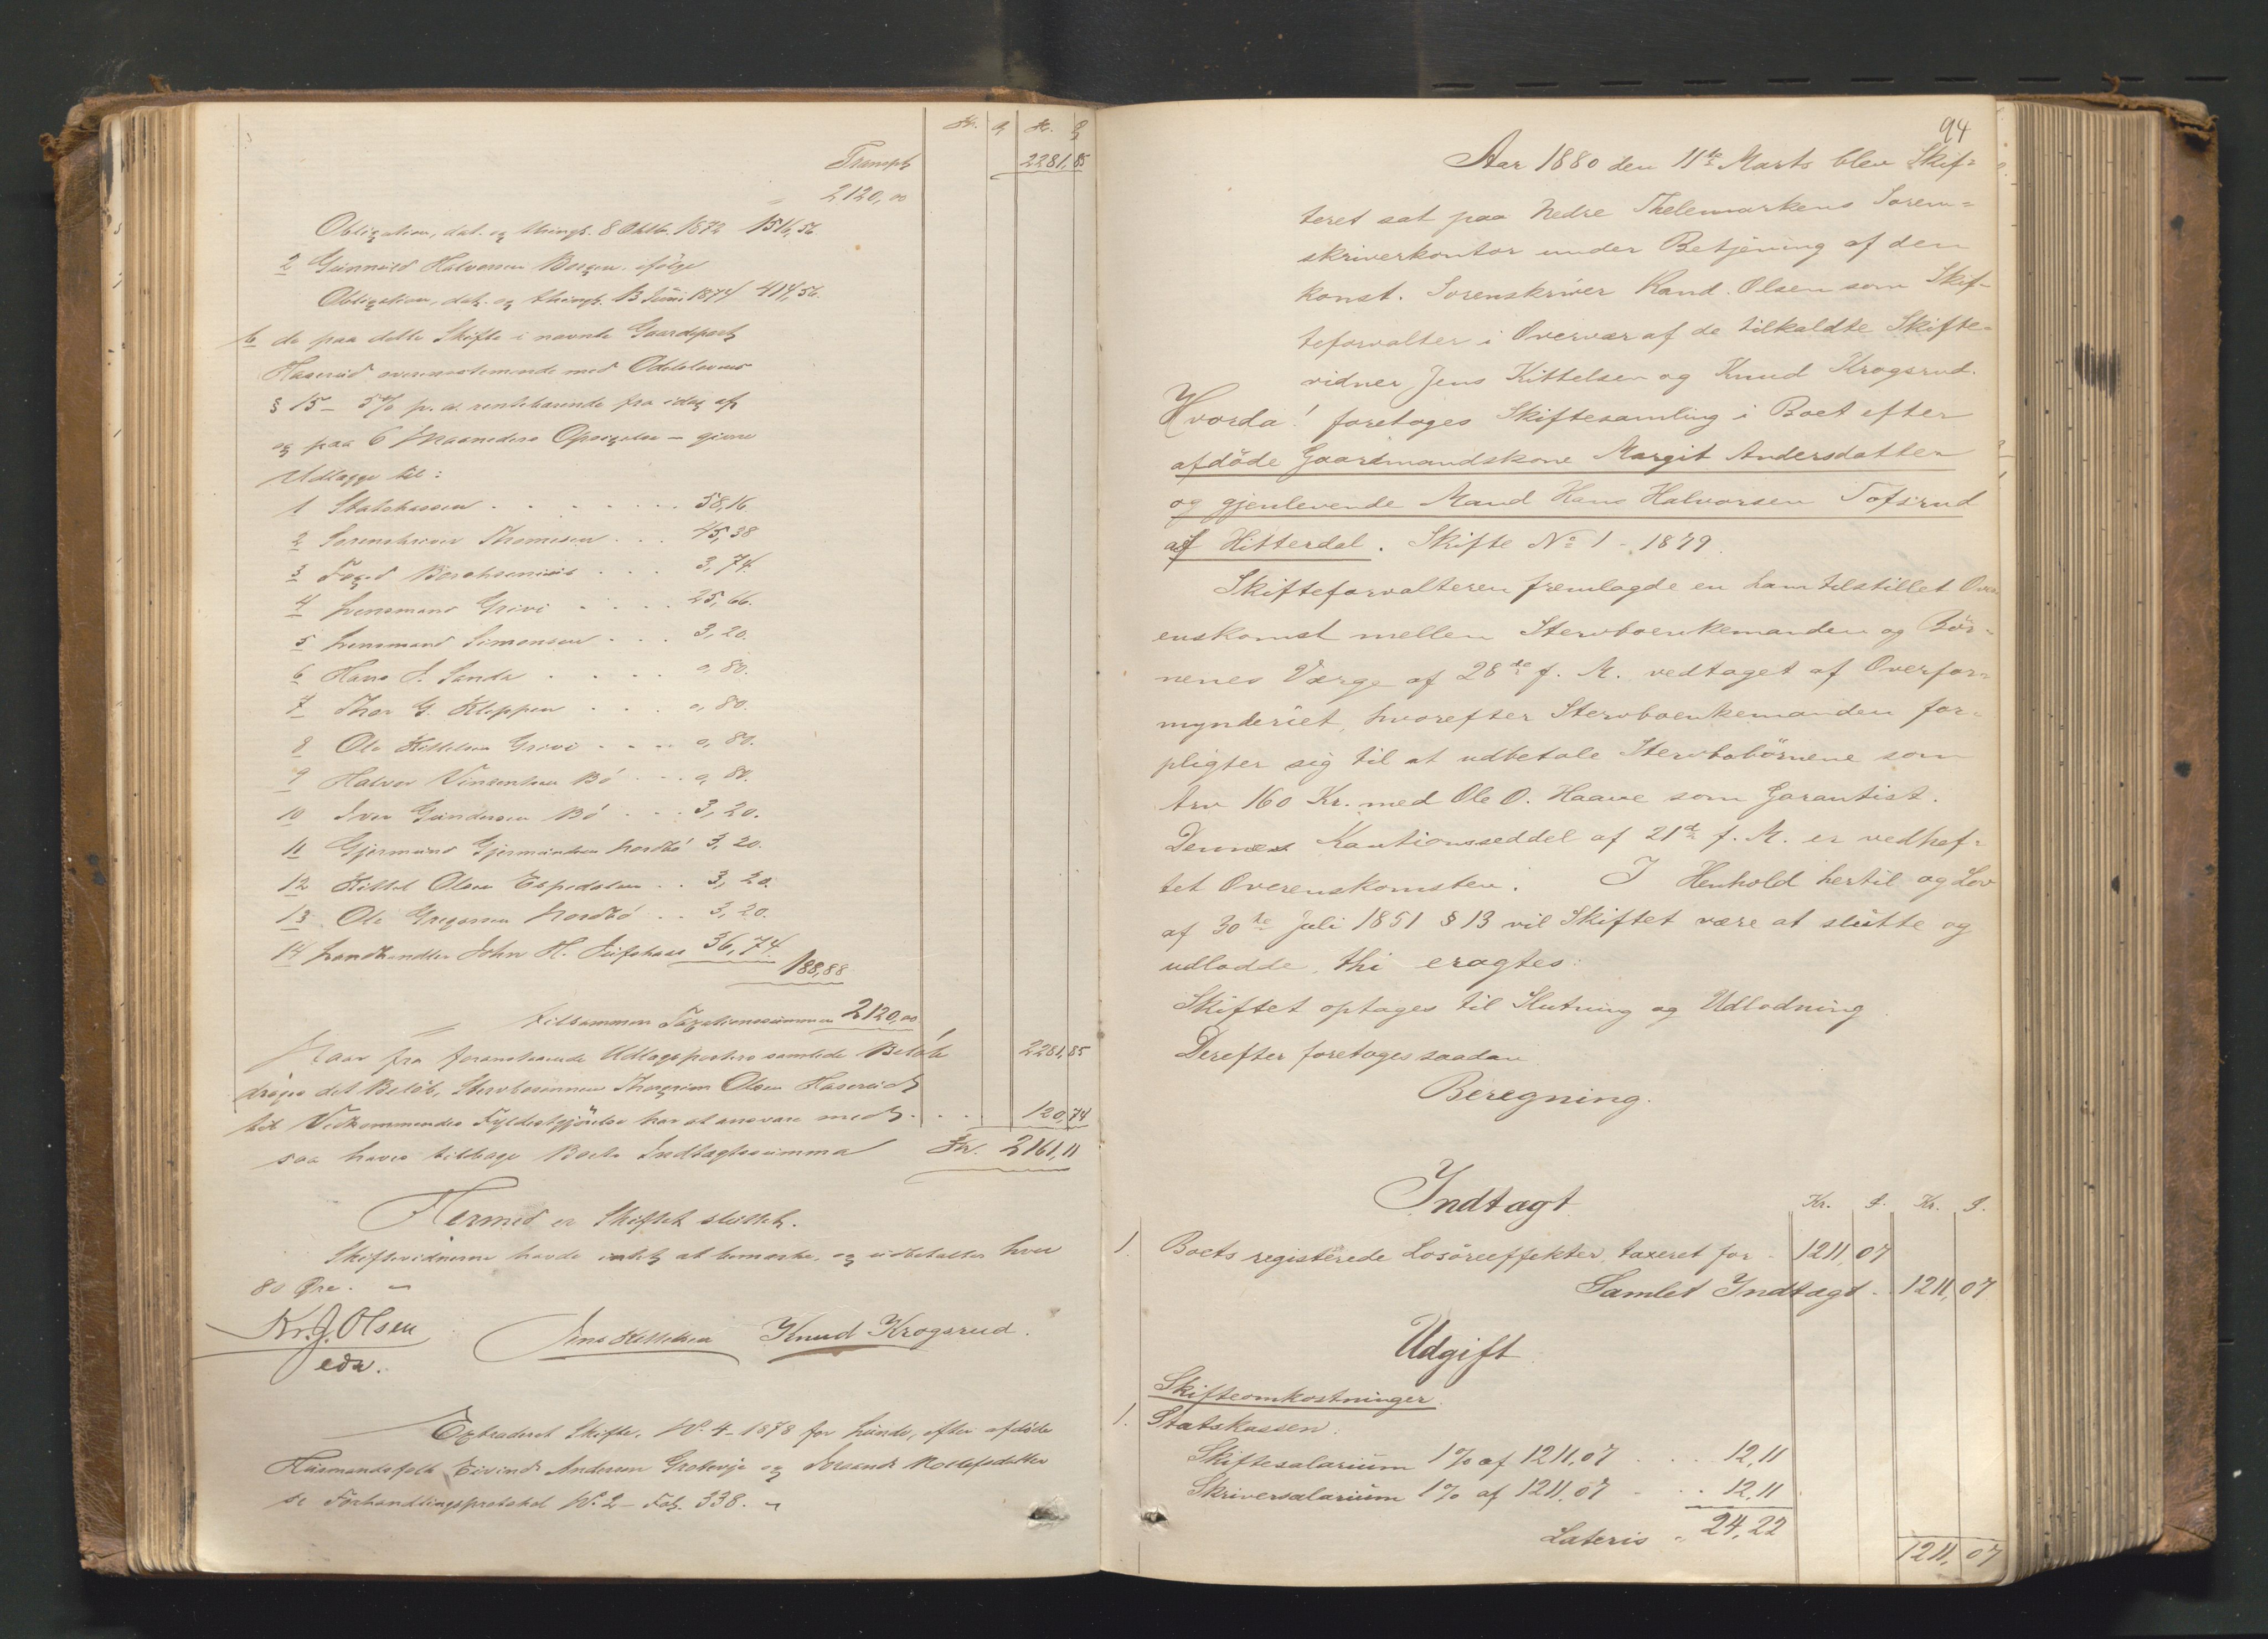 Kr. Ø Kr. Ø
Transpt 2281,85
2120,00
Obligation, dat. og thingl. 8 Oktb. 1872 1516,56
2 Gunnuld Halvorsen Borgen ifölge
Obligation, dat. og thingl. 13 Juni 1874 414,56.
b de paa dette Skifte i nævnte Gaardpart
Haserud overensstemmende med Odelslovens
§ 15 – 5% p. a. rentebærende fra idag af
og paa 6 Maaneders Opsigelse – gjorte
Udlægge til:
1 Statskassen . . . . . . . 58,16
2 Sorenskriver Thomesen . . . 45,38
3 Foged Borchsenius . . . 3,74.
4 Lensmand Grivi . . . . 25,66.
5 Lensmand Simonsen . . . 3,20.
6 Hans J. Sanda . . . . 0,80.
7 Thor G. Kleppen . . . 0,80.
8 Ole Kittelsen Grivi . . . . 0,80.
9 Halvor Vinzentsen Bö . . . 0,80.
10 Iver Gundersen Bö . . . 3,20.
11 Gjermund Gjermundsen Nordbö 3,20.
12 Kittel Olsen Espedalen . . 3,20.
13 Ole Gregarsen Nordbö . . 3,20.
14 Landhandler John H. 36,74.
188,88
tilsammen Taxationssummen 2120,00
Naar fra foranstaaende Udlagsposters samlede Belöb 2281,85
drages det Belöb, Stervbosönnen Thorgrim Olsen Haserud
til Vedkommendes Fyldestgjörelse har at ansvare med . . . 120,74
saa haves tilbage Boets Indtægtssumma Kr. 2161,11
Hermed er Skiftet sluttet.
Skiftevidnerne havde intet at bemærke, og udbetaltes hver
80 Øre. –
Kr. J. Olsen Jens Kittelsen Knud Krogsrud.
edr.
Extraderet Skifte, No. 4 – 1878 for Lunde, efter afdöde
Husmandsfolk Eivind Andersen Grotevje og Torsand Rollefsdatter
se Forhandlingsprotokol No. 2 – Fol. 338. –
94
Aar 1880 den 11te Marts blev Skif=
teret sat paa Nedre Thelemarkens Soren=
skriverkontor under Betjening af den
konst. Sorenskriver Kand. Olsen som Skif=
teforvalter i Overvær af de tilkaldte Skifte=
vidner Jens Kittelsen og Knud Krogsrud.
Hvorda! foretoges Skiftesamling i Boet efter
afdöde Gaardmandskone Margit Andersdatter
og gjenlevende Mand Hans Halvorsen Tofsrud
af Hitterdal. Skifte No 1 – 1879.
Skifteforvalteren fremlagde en ham tilstillet Over
enskomst mellem Stervboenkemanden og Bör=
nenes Værge af 28de f. M. vedtaget af Overfor=
mynderiet, hvorefter Stervboenkemanden for=
pligter sig til at udbetale Stervbobörnene som
Arv 160 Kr. med Ole O. Haave som Garantist.
Dennes Kautionsseddel af 21de f. M. er vedhef=
tet Overenskomsten. I Henhold hertil og Lov
af 30te Juli 1851 § 13 vil Skiftet være at slutte og
udlodde, thi eragtes:
Skiftet optages til Slutning og Udlodning.
Derefter foretoges saadan
Beregning.
Indtægt Kr. Ø. Kr. Ø.
1. Boets registerede Losöreeffekter, taxeret for . 1211,07
Samlet Indtægt . 1211,07
Udgift
Skifteomkostninger.
1. Statskassen.
Skiftesalarium 1% af 1211,07 . . . . 12,11
Skriversalarium 1% af 1211,07 . . . 12,11
Lateris . 24,22 1211,07